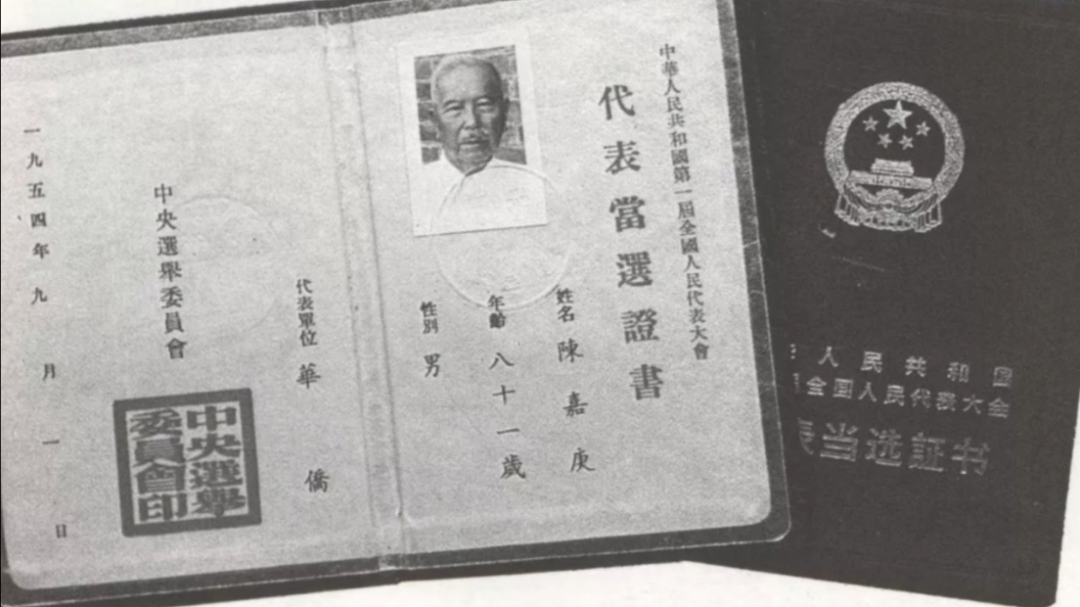 中華人民共和國第一屆全國人民代表大會
代表當選證書
姓名 陳嘉庚
年齡 八十一歲
性別 男
代表單位 華僑
中央選舉委員會
中央選舉
委員會印
一九五四年九月一日
人民共和国
全国人民代表大会
表当选证书